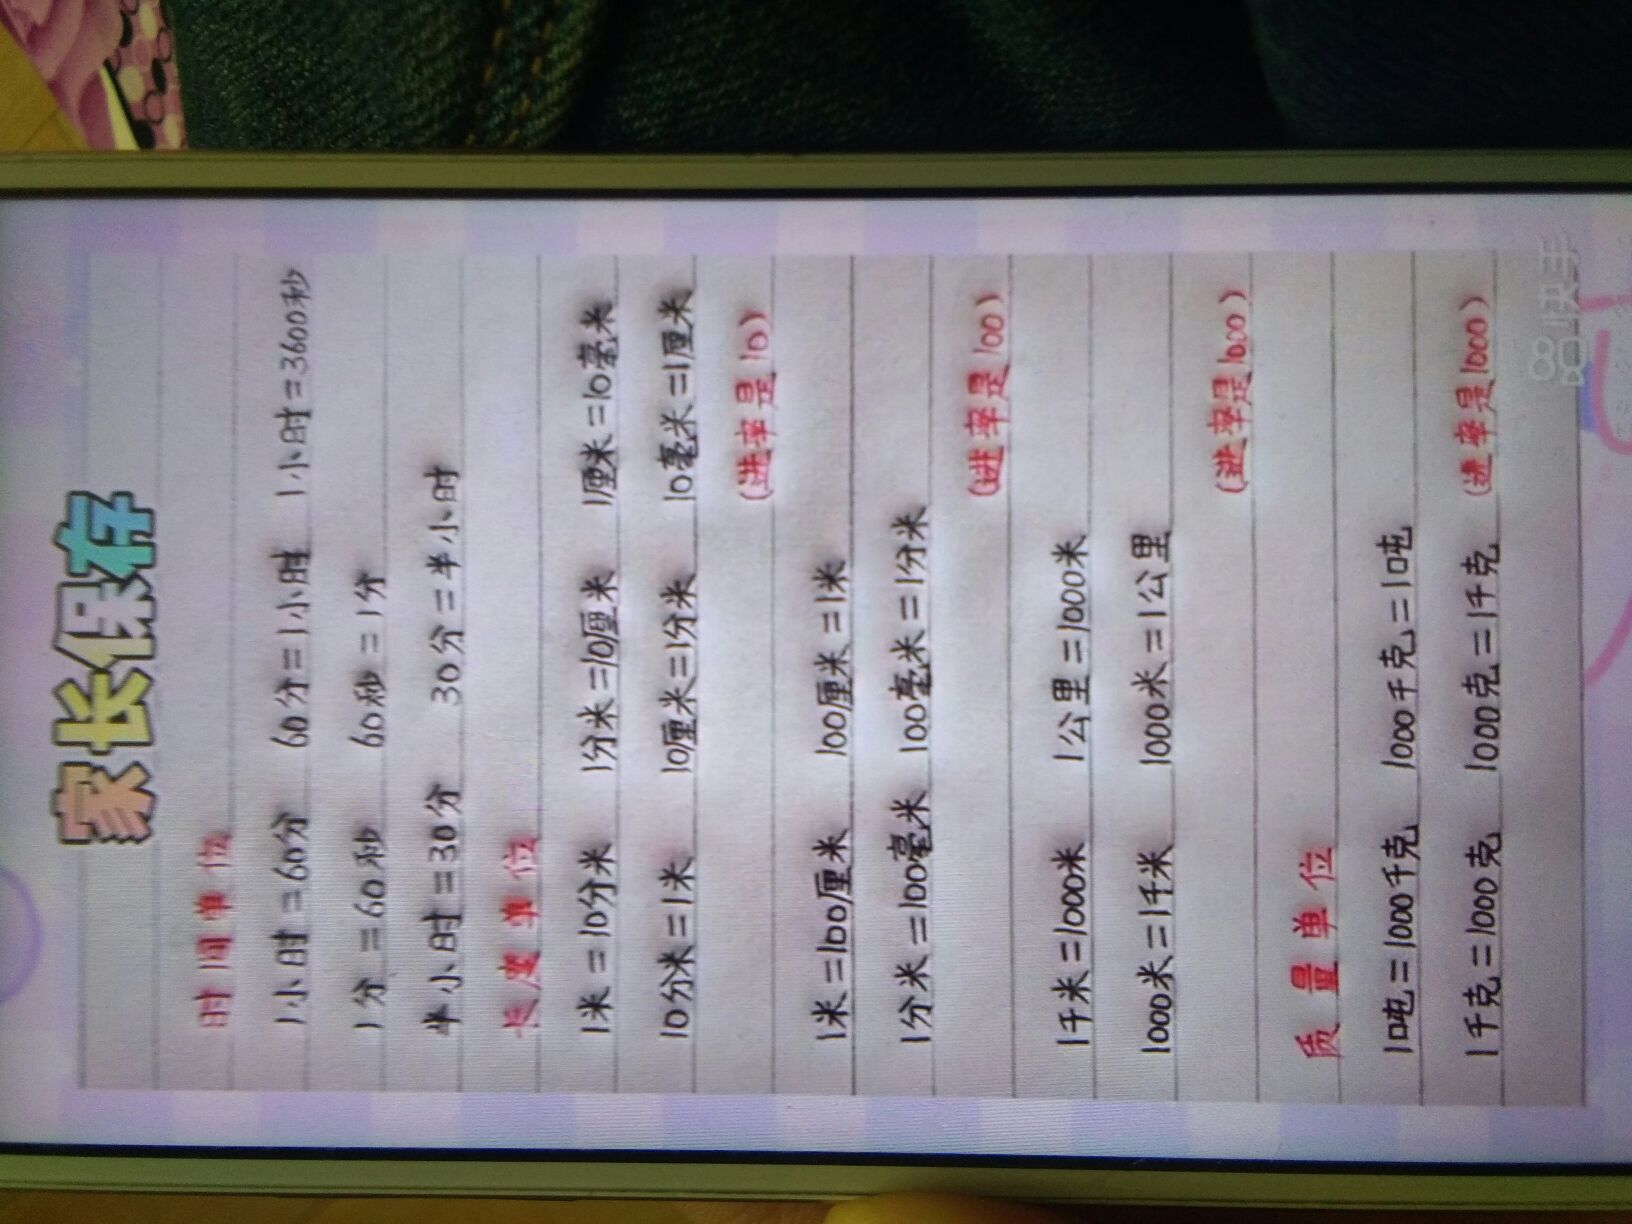 家长保存
时间单位
1小时=60分 60分=1小时 1小时=3600秒
1分=60秒 60秒=1分
半小时=30分 30分=半小时
长度单位
1米=10分米 1分米=10厘米 1厘米=10毫米
10分米=1米 10厘米=1分米 10毫米=1厘米
(进率是10)
1米=100厘米 100厘米=1米
1分米=100毫米 100毫米=1分米
(进率是100)
1千米=1000米 1公里=1000米
1000米=1千米 1000米=1公里
(进率是1000)
质量单位
1吨=1000千克 1000千克=1吨
1千克=1000克 1000克=1千克 (进率是1000)
快手